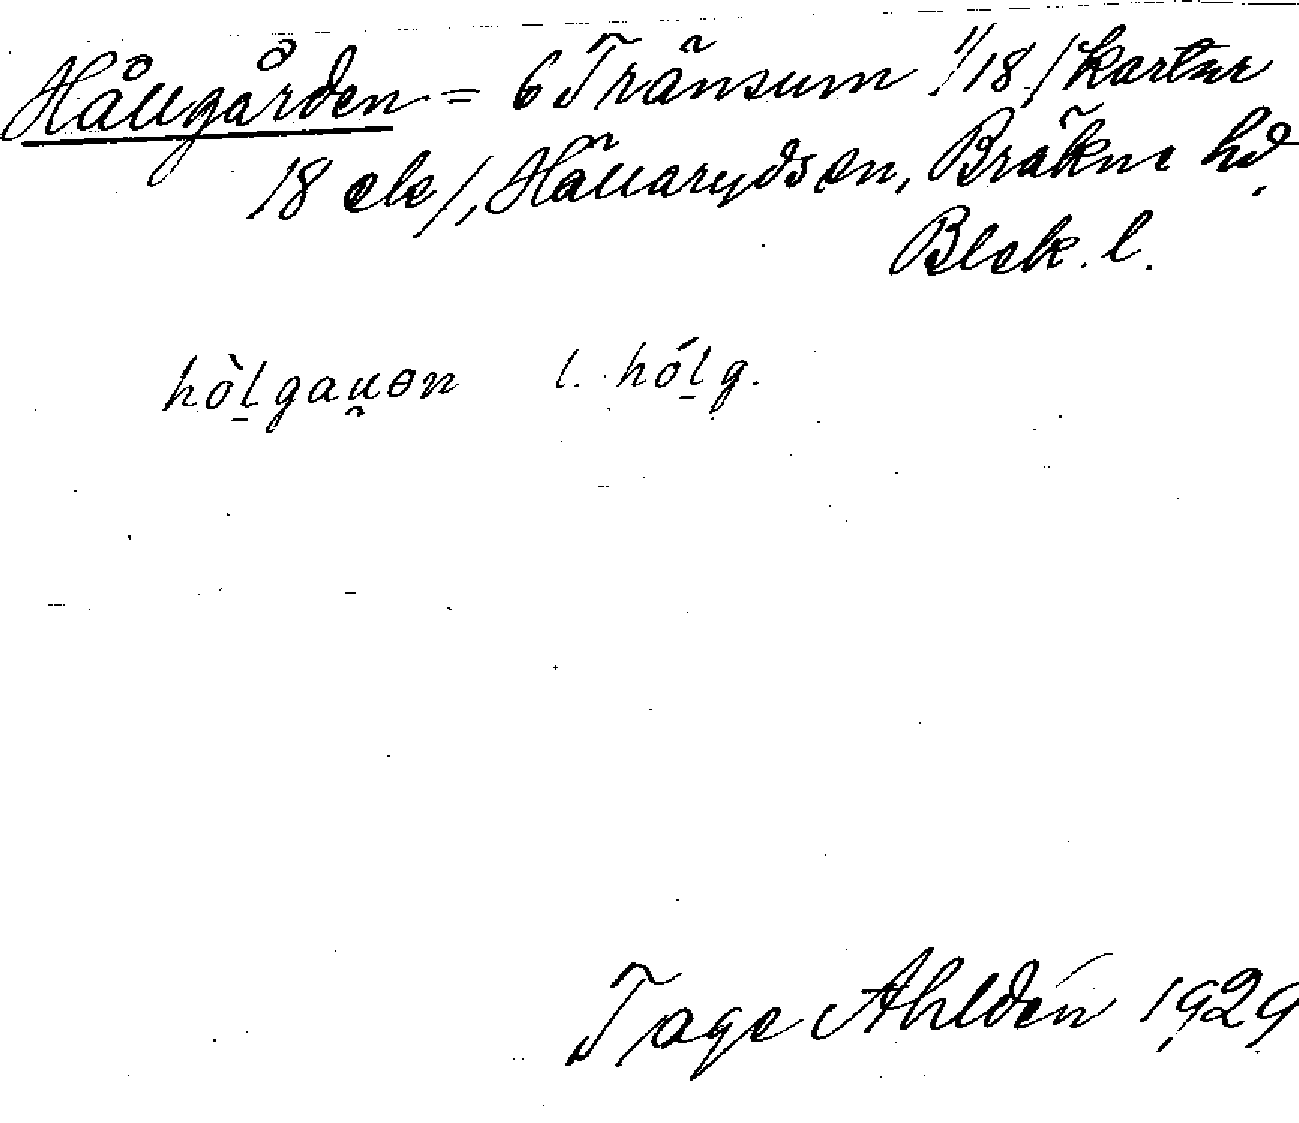 Hållgården = 6 Tränsum 1/18 /kartnr
18 ek/, Hällaryds sn, Bräkne hd,
Blek. l.
hòl̠gau̯ən l. hól̠g.
Tage Ahldén 1929